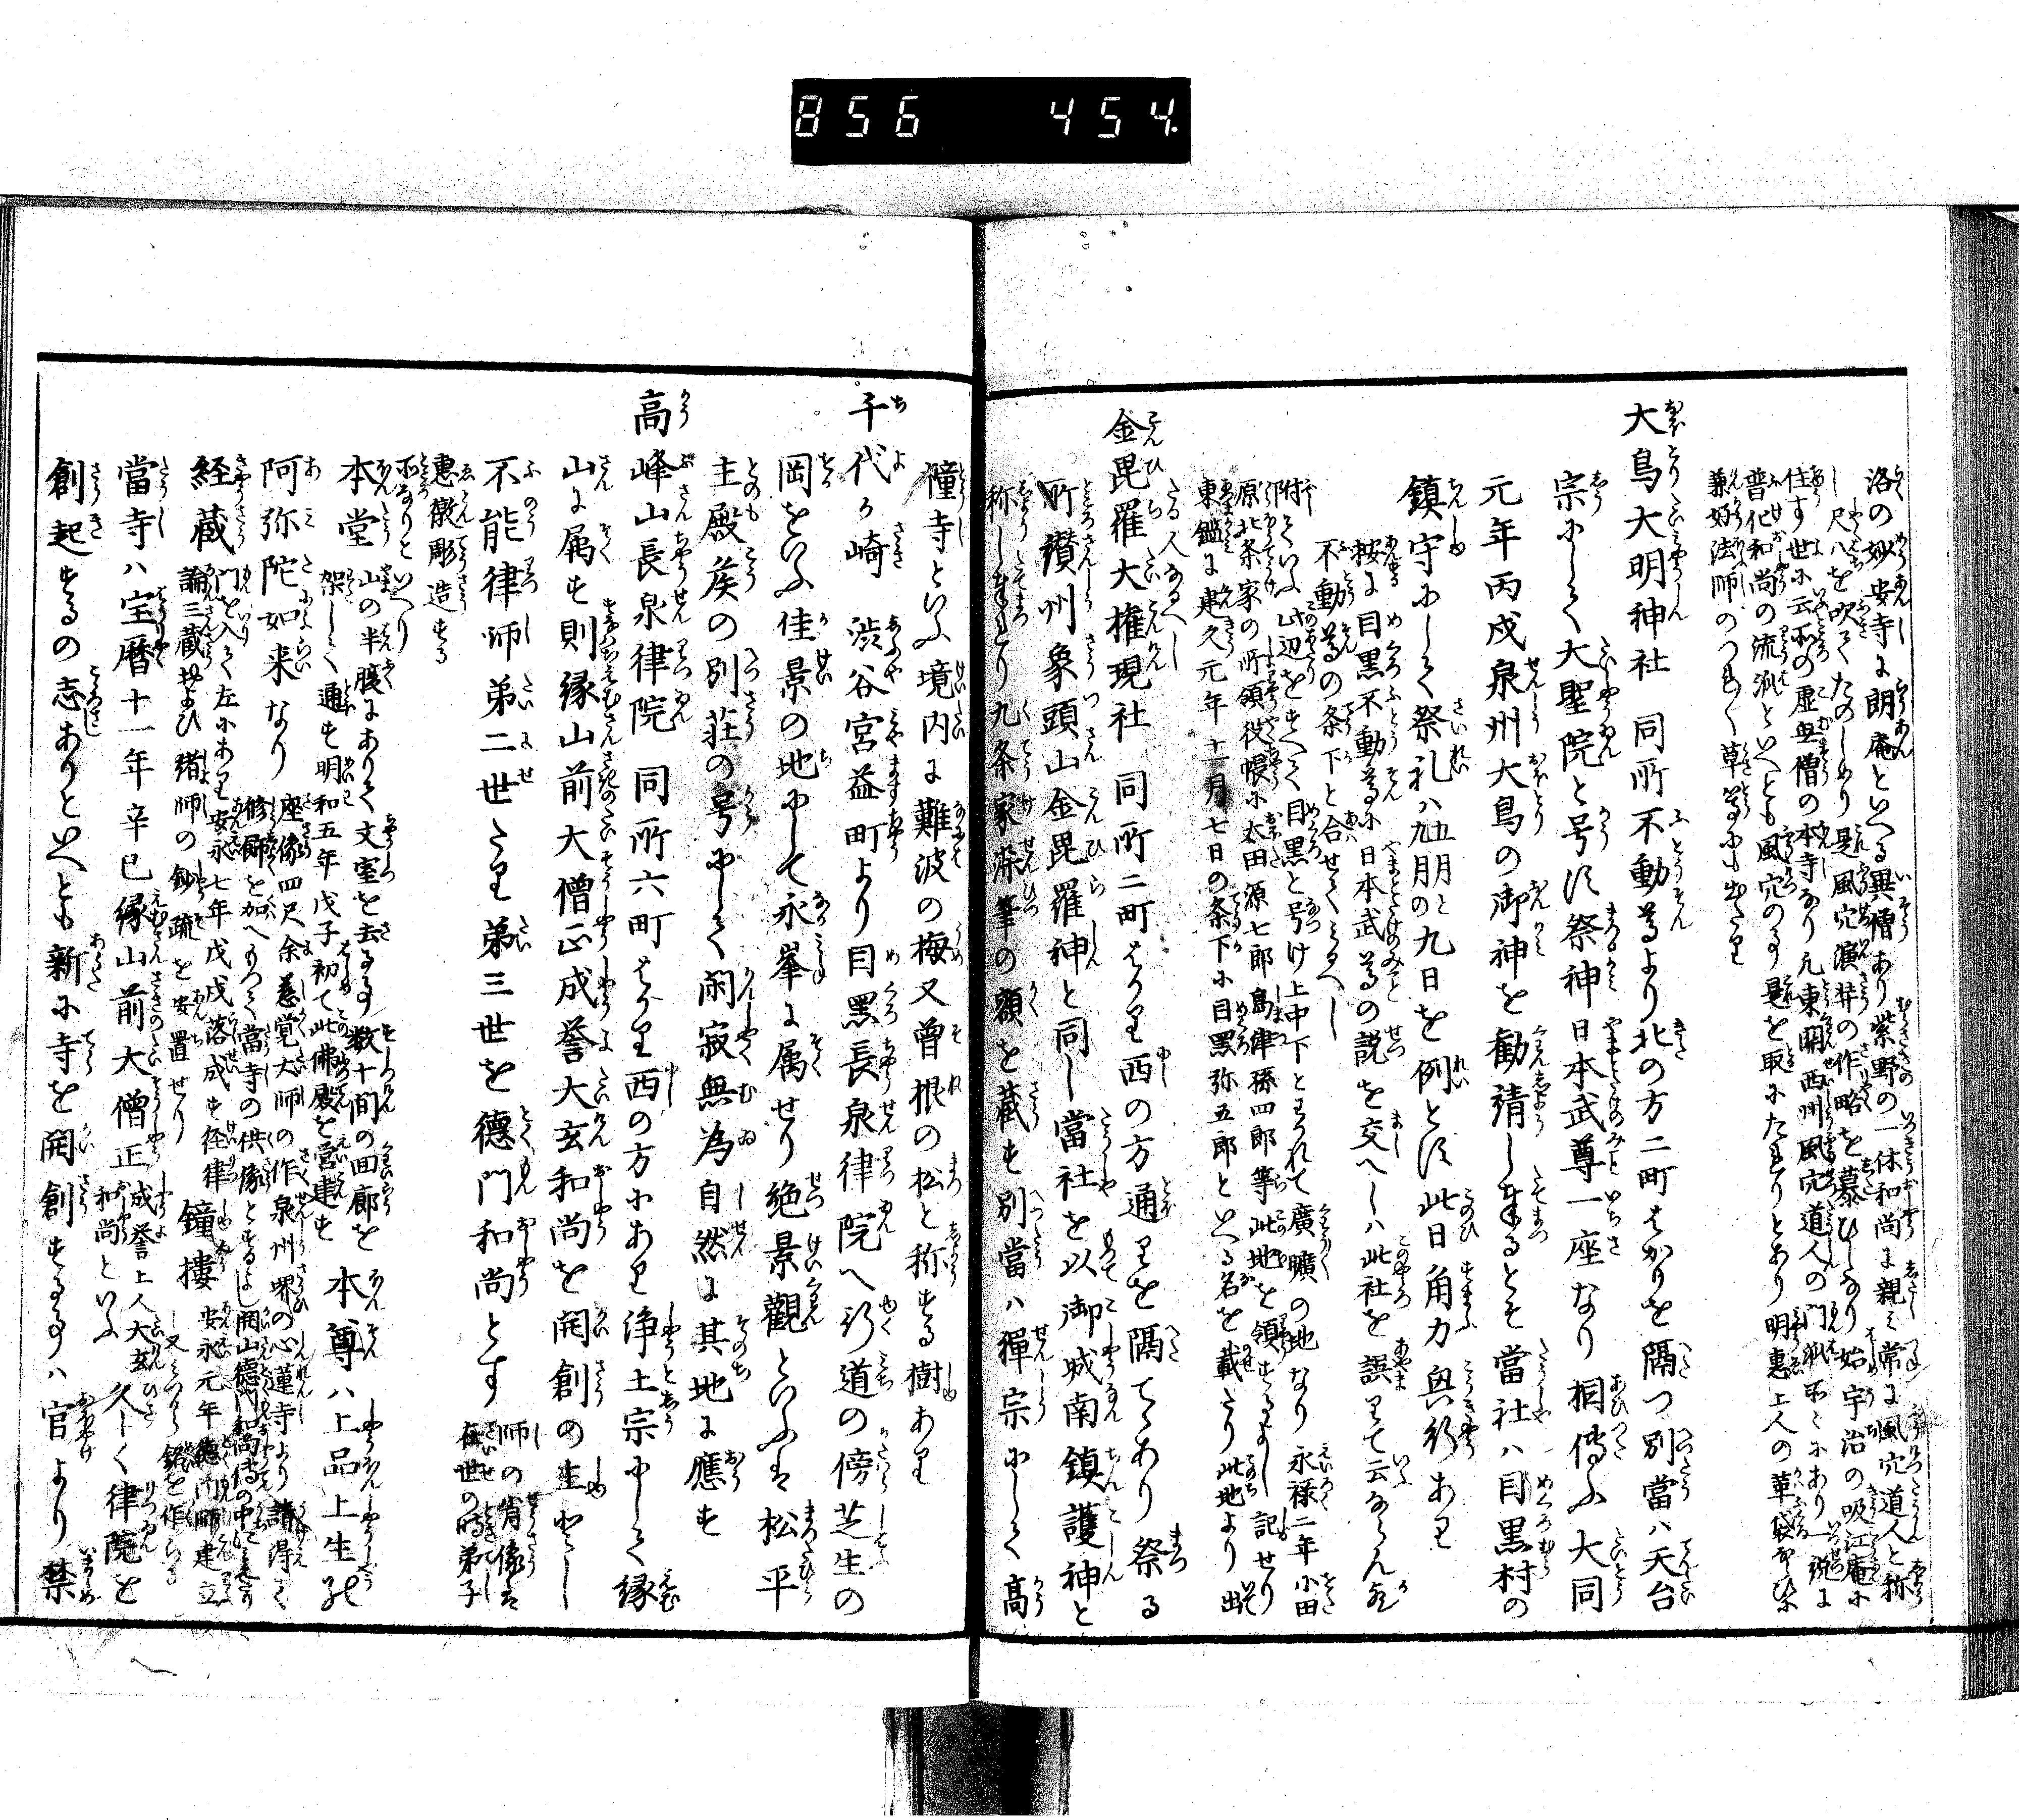 856 454.
洛の妙安寺に朗庵といへる異僧あり紫野の一休和尚に親く常に風穴道人と称
し尺八を吹てたのしめり是風穴演井の作略を慕ひしなり始宇治の吸江庵に
住す世に云所の虚無僧の本寺なり凡東関西州風穴道人の門派所々にあり一説に
普化和尚の流派といへとも風穴のり是を取にたれりとあり明恵上人の革袋
兼好法師のつれ〳〵草等にも出たり
大鳥大明神社 同所不動尊より北の方二町はかりを隔つ別當ハ天台
宗にして大聖院と号す祭神日本武尊一座なり相傳ふ大同
元年丙戌泉州大鳥の御神を勧請し奉るとそ當社ハ目黒村の
鎮守にして祭礼ハ九月九日を例とす此日角力興行あり
按に目黒不動尊に日本武尊の説を交へしハ此社を誤りて云ならん歟
不動尊の条下と合せてみるへし
附ていふ此辺をすへて目黒と号け上中下とわかれて廣曠の地なり永禄二年小田
原北条家の所領役帳に太田源七郎島津孫四郎等此地を領するよし記せり
東鑑に建久元年十一月七日の条下に目黒弥五郎といへる名を載たり此地より出
たる人なるへし
金毘羅大権現社 同所二町はかり西の方通りを隔てゝあり祭る
所讃州象頭山金毘羅神と同し當社を以御城南鎮護神と
称し奉れり九条家染筆の額を蔵す別當ハ禅宗にして高
幢寺といふ境内に難波の梅又曽根の松と称する樹あり
千代か崎 渋谷宮益町より目黒長泉律院へ行道の傍芝生の
岡をいふ佳景の地にして永峯に属せり絶景観といふは松平
主殿矦の別荘の号にして閑寂無為自然に其地に應す
高峰山長泉律院 同所六町はかり西の方にあり浄土宗にして縁
山に属す則縁山前大僧正成誉大玄和尚を開創の主とし
不能律師第二世たり第三世を徳門和尚とす 師の肖像は
在世の時弟子
恵徴彫造する
所なりといへり
本堂 山の半腹にありて文室を去る事数十間の回廊を
架して通す明和五年戊子初て此佛殿を営建す 本尊ハ上品上生の
阿弥陀如来なり 座像四尺余慈覚大師の作泉州堺の心蓮寺より請得て
修飾を加へもつて當寺の供像とするよし開山徳門和尚傳の中に見えたり
経蔵 門を入て左にあり安永七年戊戌落成す経律
論三蔵および諸師の鈔疏を安置せり 鐘楼 安永元年徳門師建立
し又みつから銘を作らる
當寺ハ宝暦十一年辛巳縁山前大僧正成誉上人大玄
和尚といふ 久しく律院を
創起するの志ありといへとも新に寺を開創する事ハ官より禁